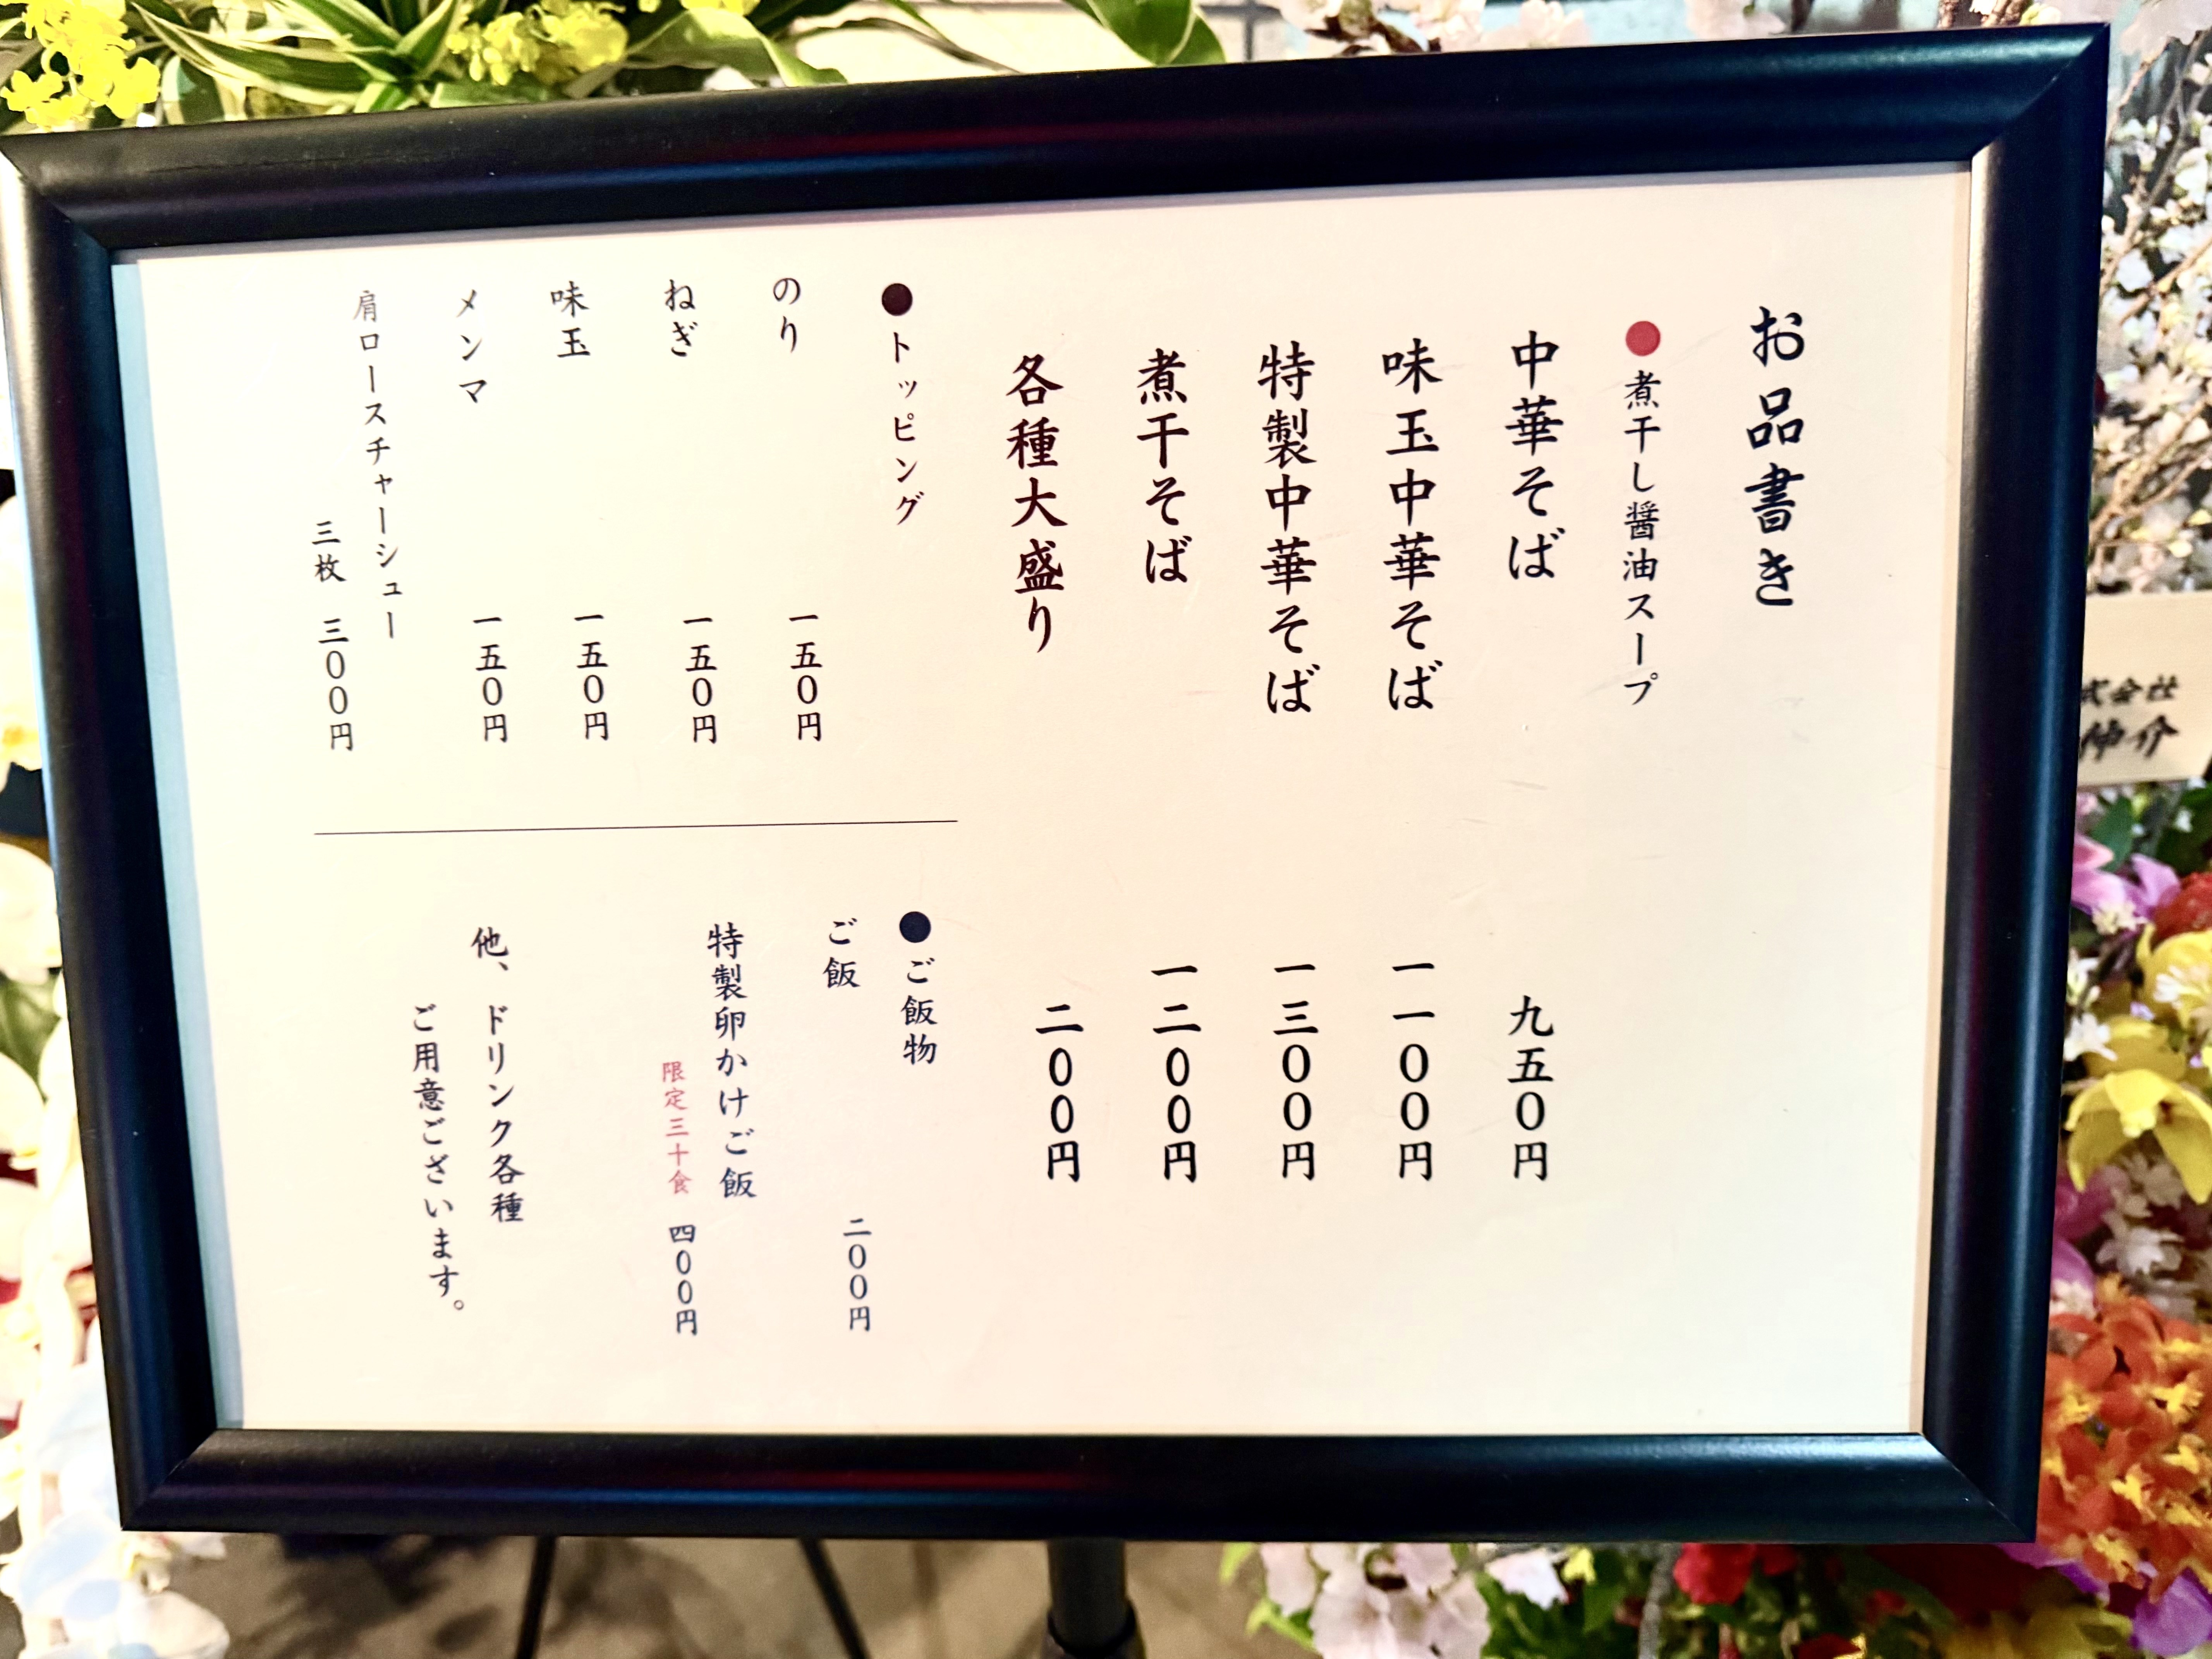 お品書き
●煮干し醤油スープ
中華そば 九五〇円
味玉中華そば 一一〇〇円
特製中華そば 一三〇〇円
煮干そば 一二〇〇円
各種大盛り 二〇〇円
●トッピング
のり 一五〇円
ねぎ 一五〇円
味玉 一五〇円
メンマ 一五〇円
肩ロースチャーシュー
三枚 三〇〇円
●ご飯物
ご飯 二〇〇円
特製卵かけご飯
限定三十食 四〇〇円
他、ドリンク各種
ご用意ございます。
式会社
仲介